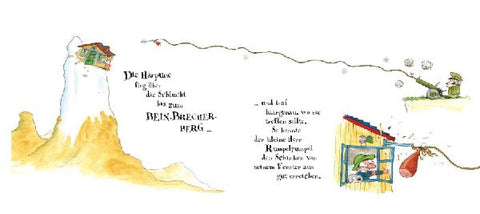 Die Harpune
flog über
die Schlucht
bis zum
BEIN-BRECHER-
BERG ...
... und traf
haargenau, wo sie
treffen sollte.
So konnte
der kleine Herr
Rumpelpumpel
den Schinken von
seinem Fenster aus
gut erreichen.